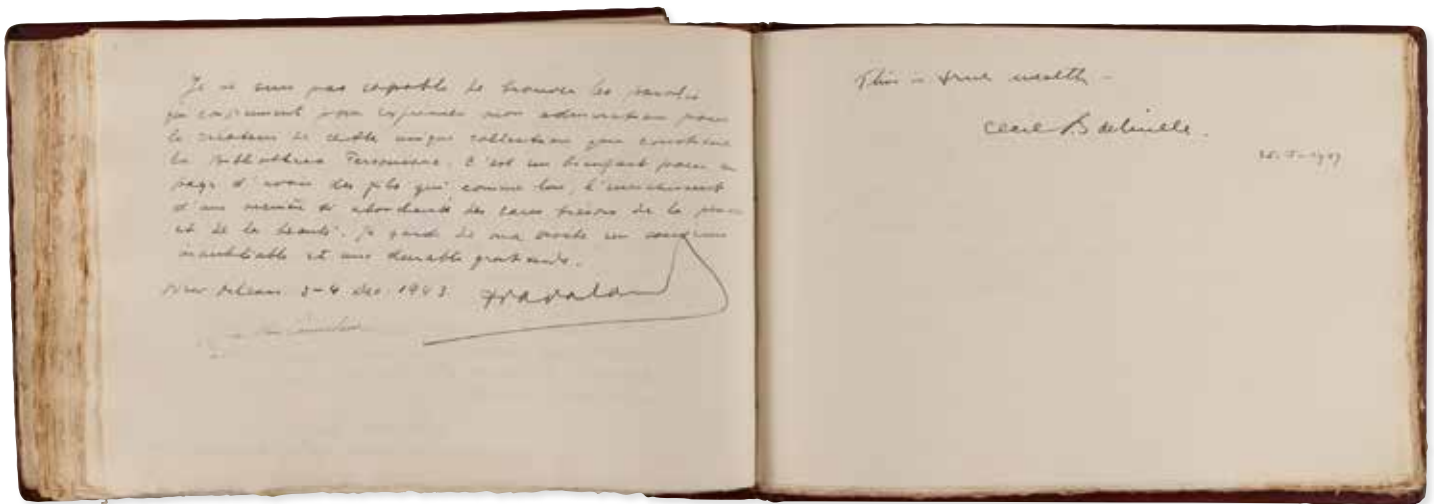 Je ne suis pas capable de trouver les paroles
qui conviennent pour exprimer mon admiration pour
le créateur de cette unique collection que constitue
la Bibliotheca Parsoniana. C'est un bienfait pour un
pays d'avoir des fils qui comme lui, l'enrichissent
d'une manière si abondante des rares trésors de la
et de la beauté. Je garde de ma visite un souvenir
inoubliable et une durable gratitude.
New Orleans 3-4 Dec. 1943.
This is true wealth -
Cecil B deMille.